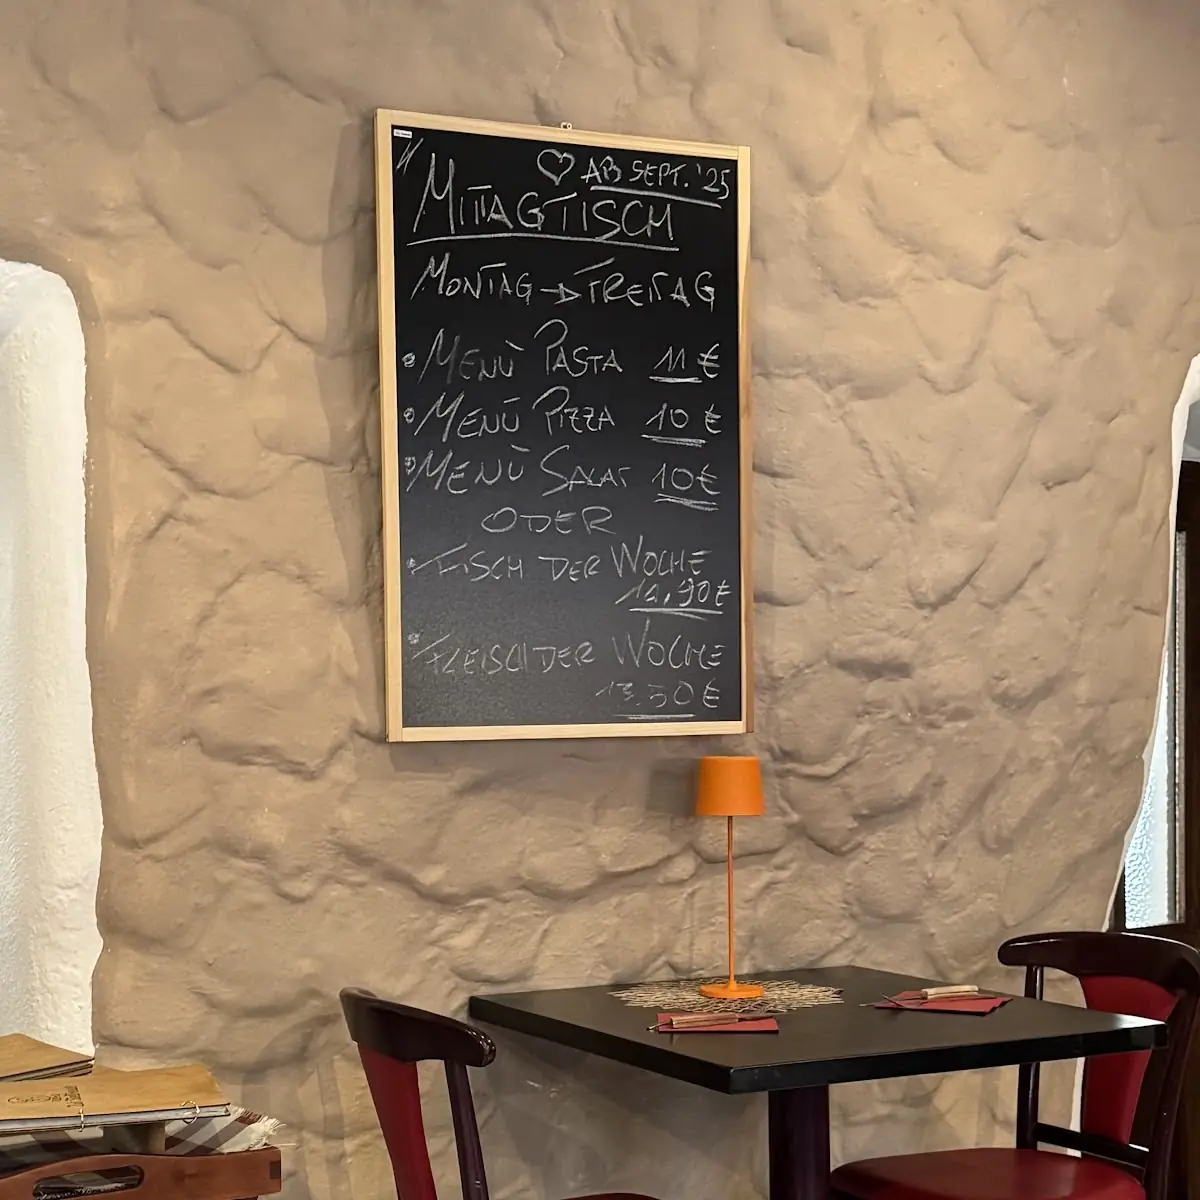 ♡ AB SEPT. '25
MITTAGTISCH
MONTAG → FREITAG
• MENÙ PASTA 11 €
• MENÙ PIZZA 10 €
• MENÙ SALAT 10 €
ODER
• FISCH DER WOCHE
• FLEISCH DER WOCHE
13.50 €